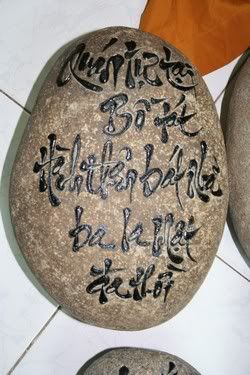 Quán Tự Tại
Bồ Tát
Hành thâm bát nhã
ba la mật
đa thời